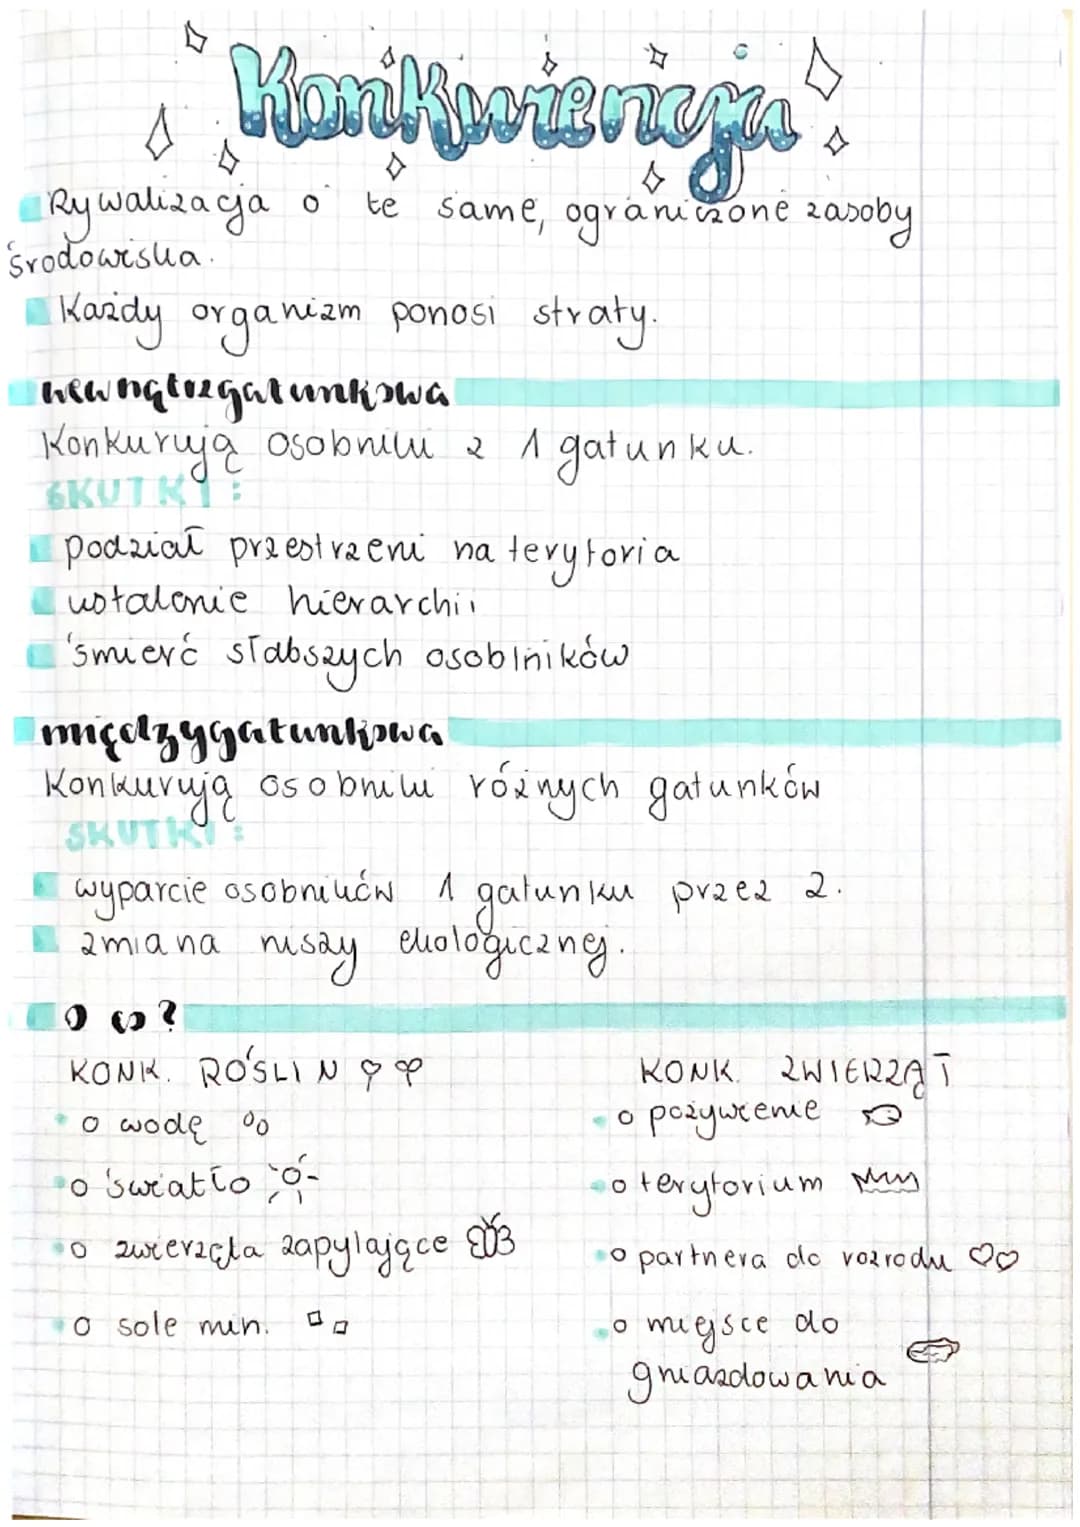 Konkurencja
Rywalizacja o te same, ograniczone zasoby
środowiska.
Każdy organizm ponosi straty.
wewnątrzgatunkowa
Konkurują osobniki z 1 gatunku.
SKUTKI:
podział przestrzeni na terytoria
ustalenie hierarchii
śmierć słabszych osoblników
międzygatunkowa
Konkurują osobniki różnych gatunków
SKUTKI:
wyparcie osobników 1 gatunku przez 2.
zmiana niszy ekologicznej.
O co?
KONK. ROŚLIN
o wodę
o światło
o zwierzęta zapylające
o sole min.
KONK. ZWIERZĄT
o pożywienie
o terytorium
o partnera do rozrodu
o miejsce do
gniazdowania